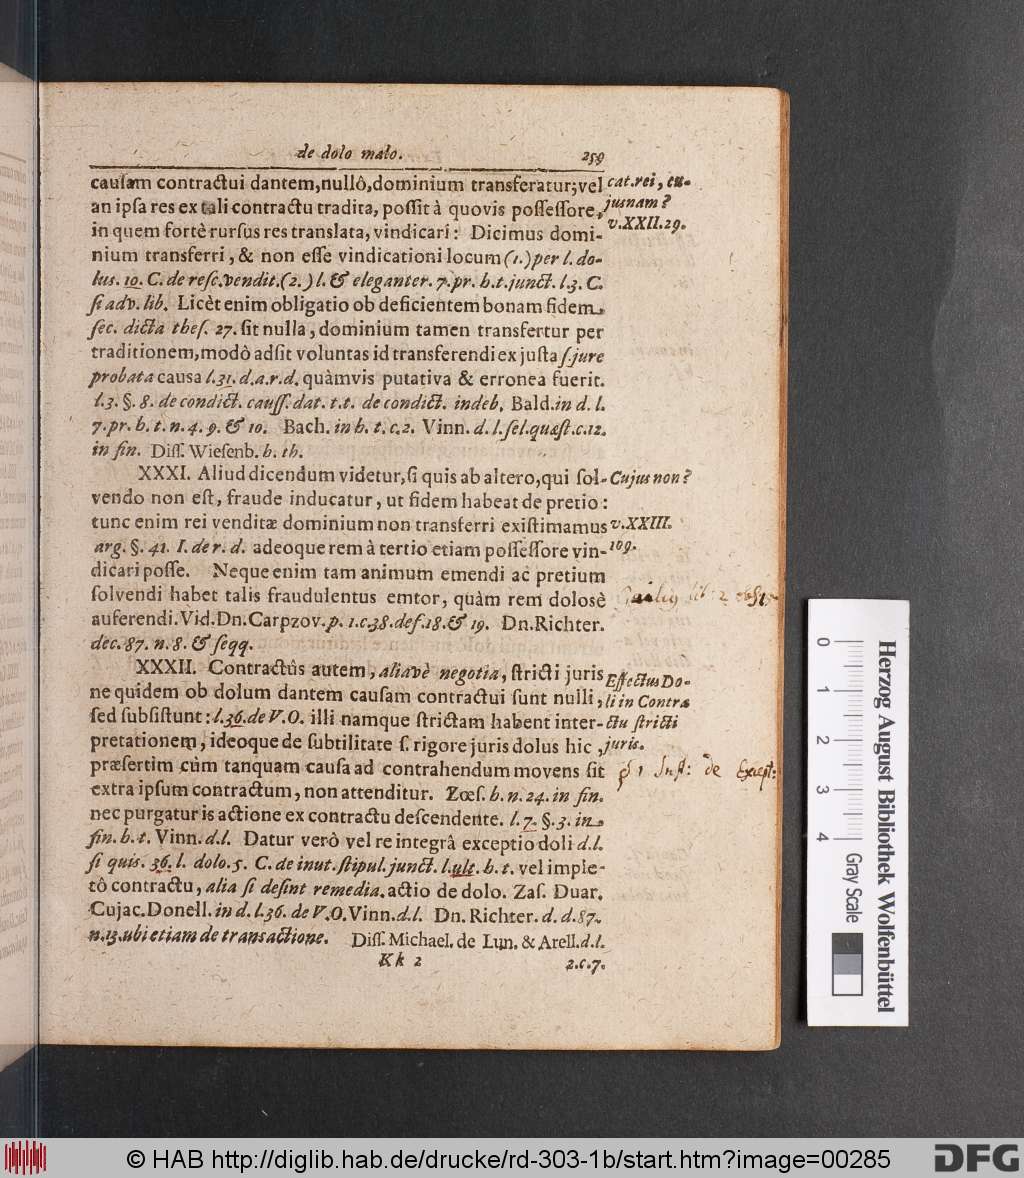 de dolo malo. 259
cauſam contractui dantem, nullô, dominium transferatur; vel cat.rei, cu-
an ipſa res ex tali contractu tradita, poſſit à quovis poſſeſſore, jusnam?
in quem fortè rurſus res translata, vindicari: Dicimus domi- v.XXII.29.
nium transferri, & non eſſe vindicationi locum (1.) per l. do-
lus. 10. C. de reſc.vendit. (2.) l. & eleganter. 7. pr. h.t. junct. l.3. C.
ſi adv. lib. Licèt enim obligatio ob deficientem bonam fidem,
ſec. dicta theſ. 27. ſit nulla, dominium tamen transfertur per
traditionem, modò adſit voluntas id transferendi ex juſta ſ. jure
probata causa l.31. d.a.r.d. quàmvis putativa & erronea fuerit.
l.3. §. 8. de condict. cauſſ. dat. t.t. de condict. indeb. Bald. in d. l.
7. pr. h. t. n. 4. 9. & 10. Bach. in h. t. c.2. Vinn. d. l. ſel. quæſt. c.12.
in fin. Diſſ. Wieſenb. h. th.
XXXI. Aliud dicendum videtur, ſi quis ab altero, qui ſol- Cujus non?
vendo non eſt, fraude inducatur, ut fidem habeat de pretio:
tunc enim rei venditæ dominium non transferri exiſtimamus v.XXIII.
arg. §. 41. I. de r. d. adeoque rem à tertio etiam poſſeſſore vin- 109.
dicari poſſe. Neque enim tam animum emendi ac pretium
ſolvendi habet talis fraudulentus emtor, quàm rem dolosè
auferendi. Vid. Dn. Carpzov. p. 1. c. 38. def. 18. & 19. Dn. Richter.
dec. 87. n. 8. & ſeqq.
XXXII. Contractûs autem, aliavè negotia, ſtricti juris Effectus Do-
ne quidem ob dolum dantem cauſam contractui sunt nulli, li in Contra
ſed ſubſiſtunt: l.36. de V.O. illi namque ſtrictam habent inter- ctu ſtricti
pretationem, ideoque de ſubtilitate ſ. rigore juris dolus hic, juris.
præſertim cùm tanquam cauſa ad contrahendum movens ſit § 1 Inst: de Except:
extra ipſum contractum, non attenditur. Zœſ. h. n. 24. in fin.
nec purgatur is actione ex contractu deſcendente. l. 7. §. 3. in
fin. h. t. Vinn. d.l. Datur verò vel re integrâ exceptio doli d.l.
ſi quis. 36. l. dolo. 5. C. de inut. ſtipul. junct. l. ult. h. t. vel imple-
tô contractu, alia ſi deſint remedia, actio de dolo. Zaſ. Duar.
Cujac. Donell. in d. l.36. de V.O. Vinn. d.l. Dn. Richter. d. d. 87.
n.13. ubi etiam de transactione. Diſſ. Michael. de Lun. & Arell. d.l.
Kk 2 2.c.7.
0 1 2 3 4
Herzog August Bibliothek Wolfenbüttel
Gray Scale
© HAB http://diglib.hab.de/drucke/rd-303-1b/start.htm?image=00285
DFG